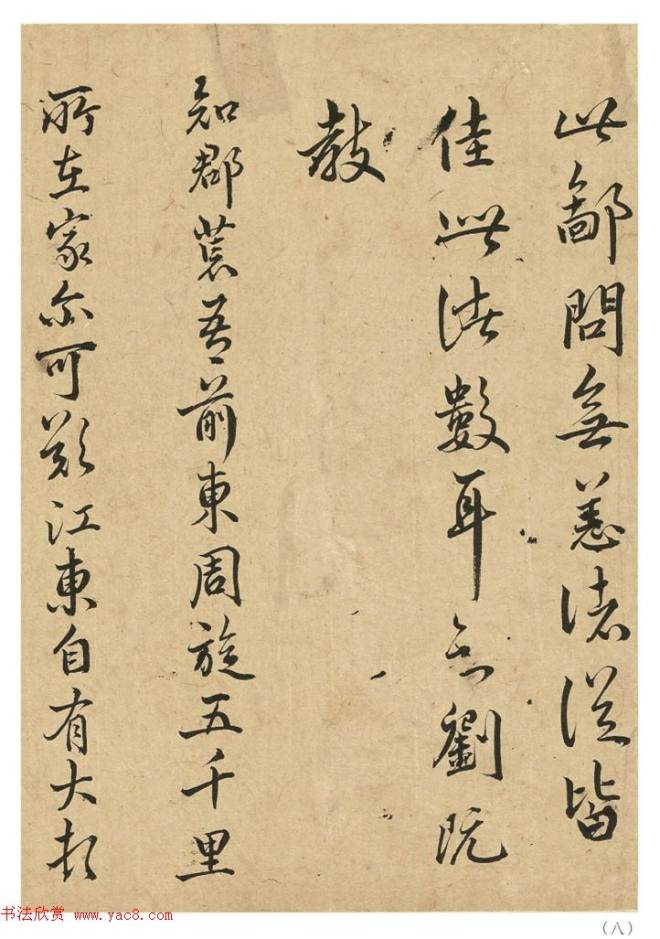 此郗問無恙諸從皆
佳此洪數耳劉既
教
知郡荒吾前東周旋五千里
所在家尔可歎江東自有大頓
书法欣赏 www.yac8.com
(八)